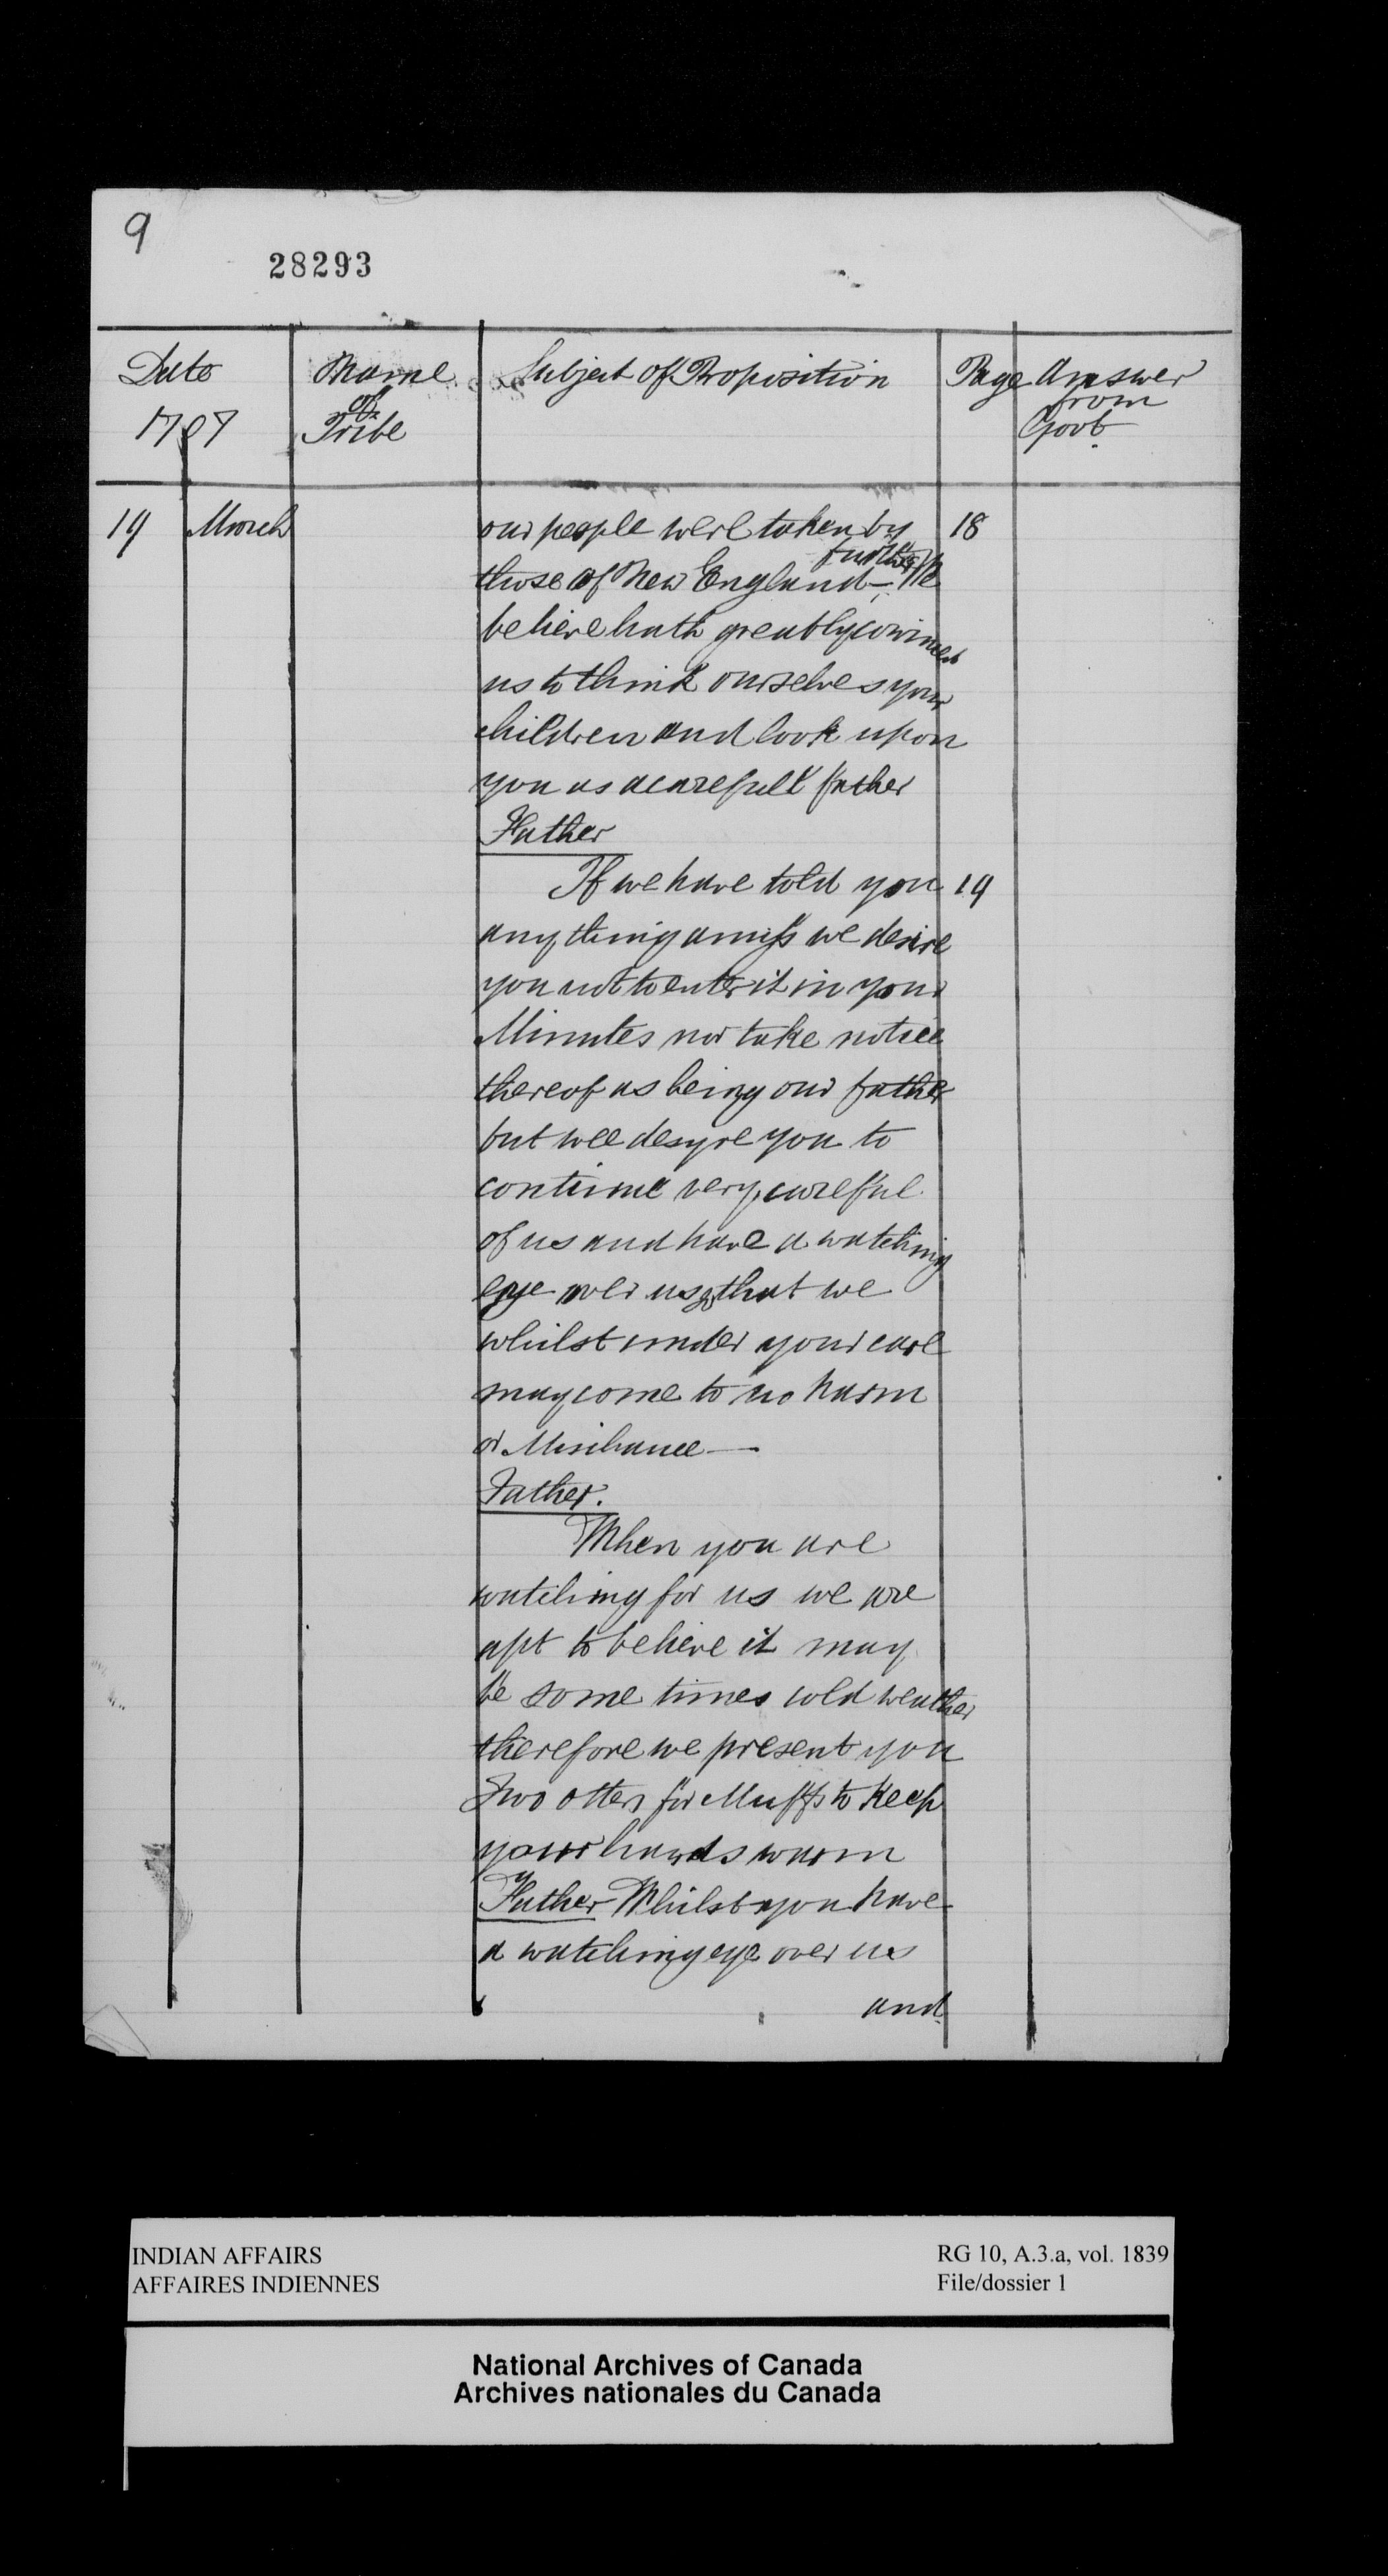 9
28293
Date Name Subject of Proposition Page Answer
of from
1707 Tribe Govt.
19 March our people were taken by 18
further We
those of New England—,
believe hath greatly
us to think ourselves your
children and look upon
you as a carefull father
Father
If we have told you 19
any thing amiss we desire
you not to enter it in your
Minutes nor take notice
thereof as being our father
but wee desyre you to
continue very careful
of us and have a watching
eye over us, that we
whilst under your care
may come to no harm
or Mischance —
Father.
When you are
watching for us we are
apt to believe it may
be some times cold weather
therefore we present you
Two otters for Muffs to keep
your hands warm
Father Whilst you have
a watching eye over us
and
INDIAN AFFAIRS RG 10, A.3.a, vol. 1839
AFFAIRES INDIENNES File/dossier 1
National Archives of Canada
Archives nationales du Canada